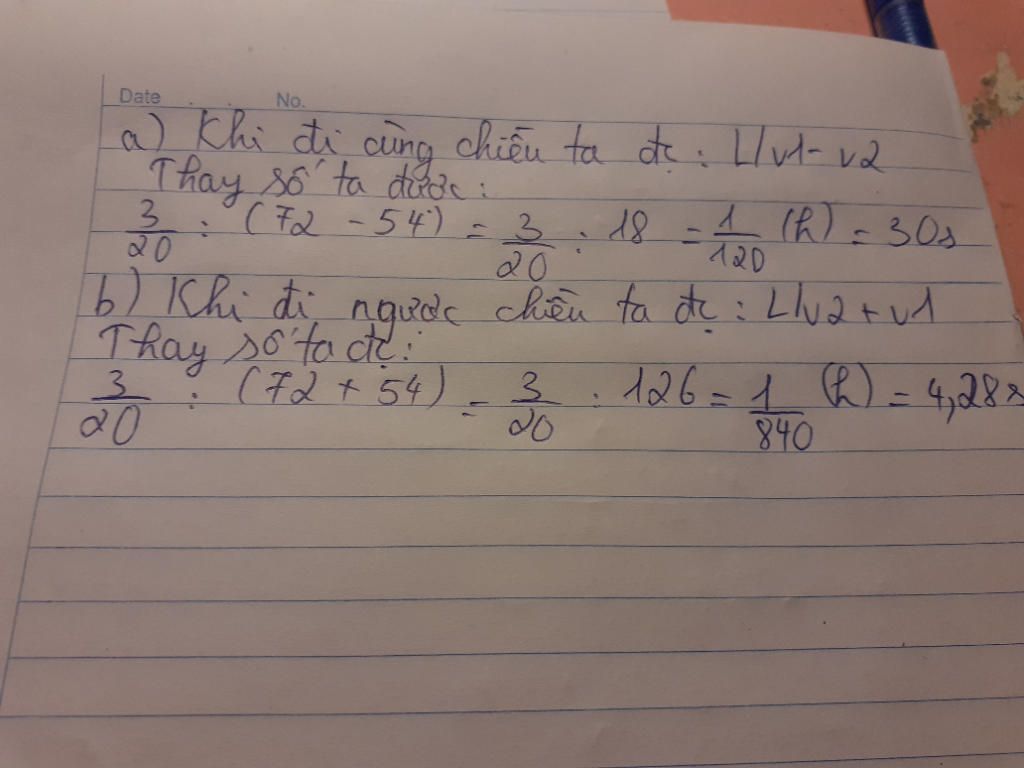 Date . . No.
a) Khi đi cùng chiều ta đc : L/v1 - v2
Thay số ta được :
3/20 : (72 - 54) = 3/20 : 18 = 1/120 (h) = 30s
b) Khi đi ngược chiều ta đc : L/v2 + v1
Thay số ta đc :
3/20 : (72 + 54) = 3/20 : 126 = 1/840 (h) = 4,28s